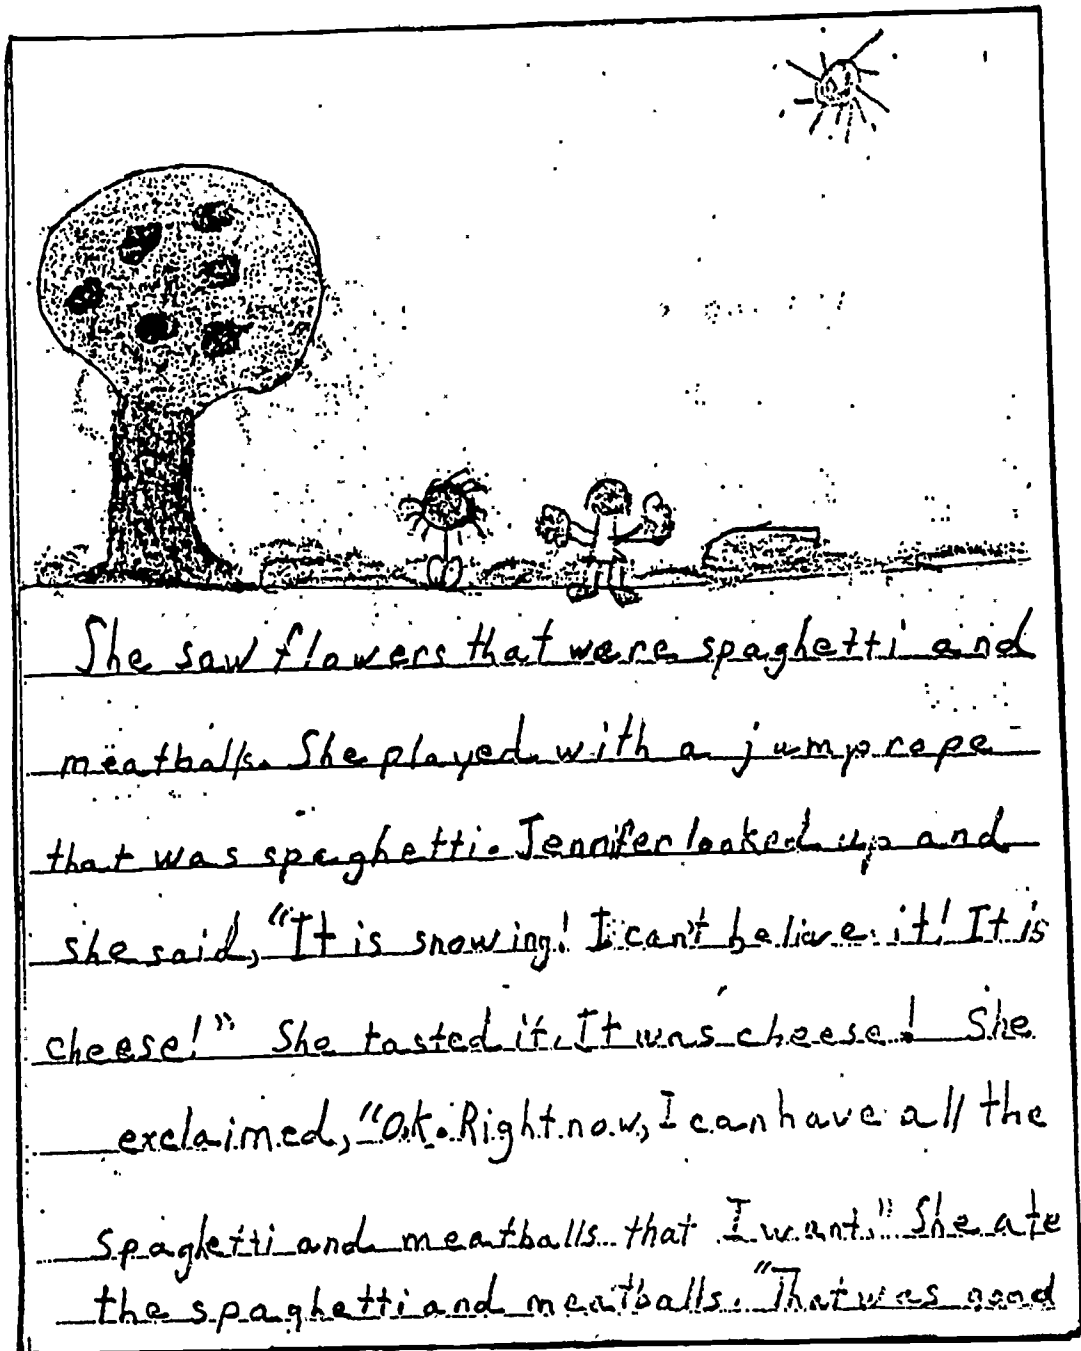 She saw flowers that were spaghetti and
meatballs. She played with a jump rope
that was spaghetti. Jennifer looked up and
she said, "It is snowing! I can't believe it! It is
cheese!" She tasted it. It was cheese! She
exclaimed, "O.K. Right now, I can have all the
spaghetti and meatballs that I want." She ate
the spaghetti and meatballs. "That was good